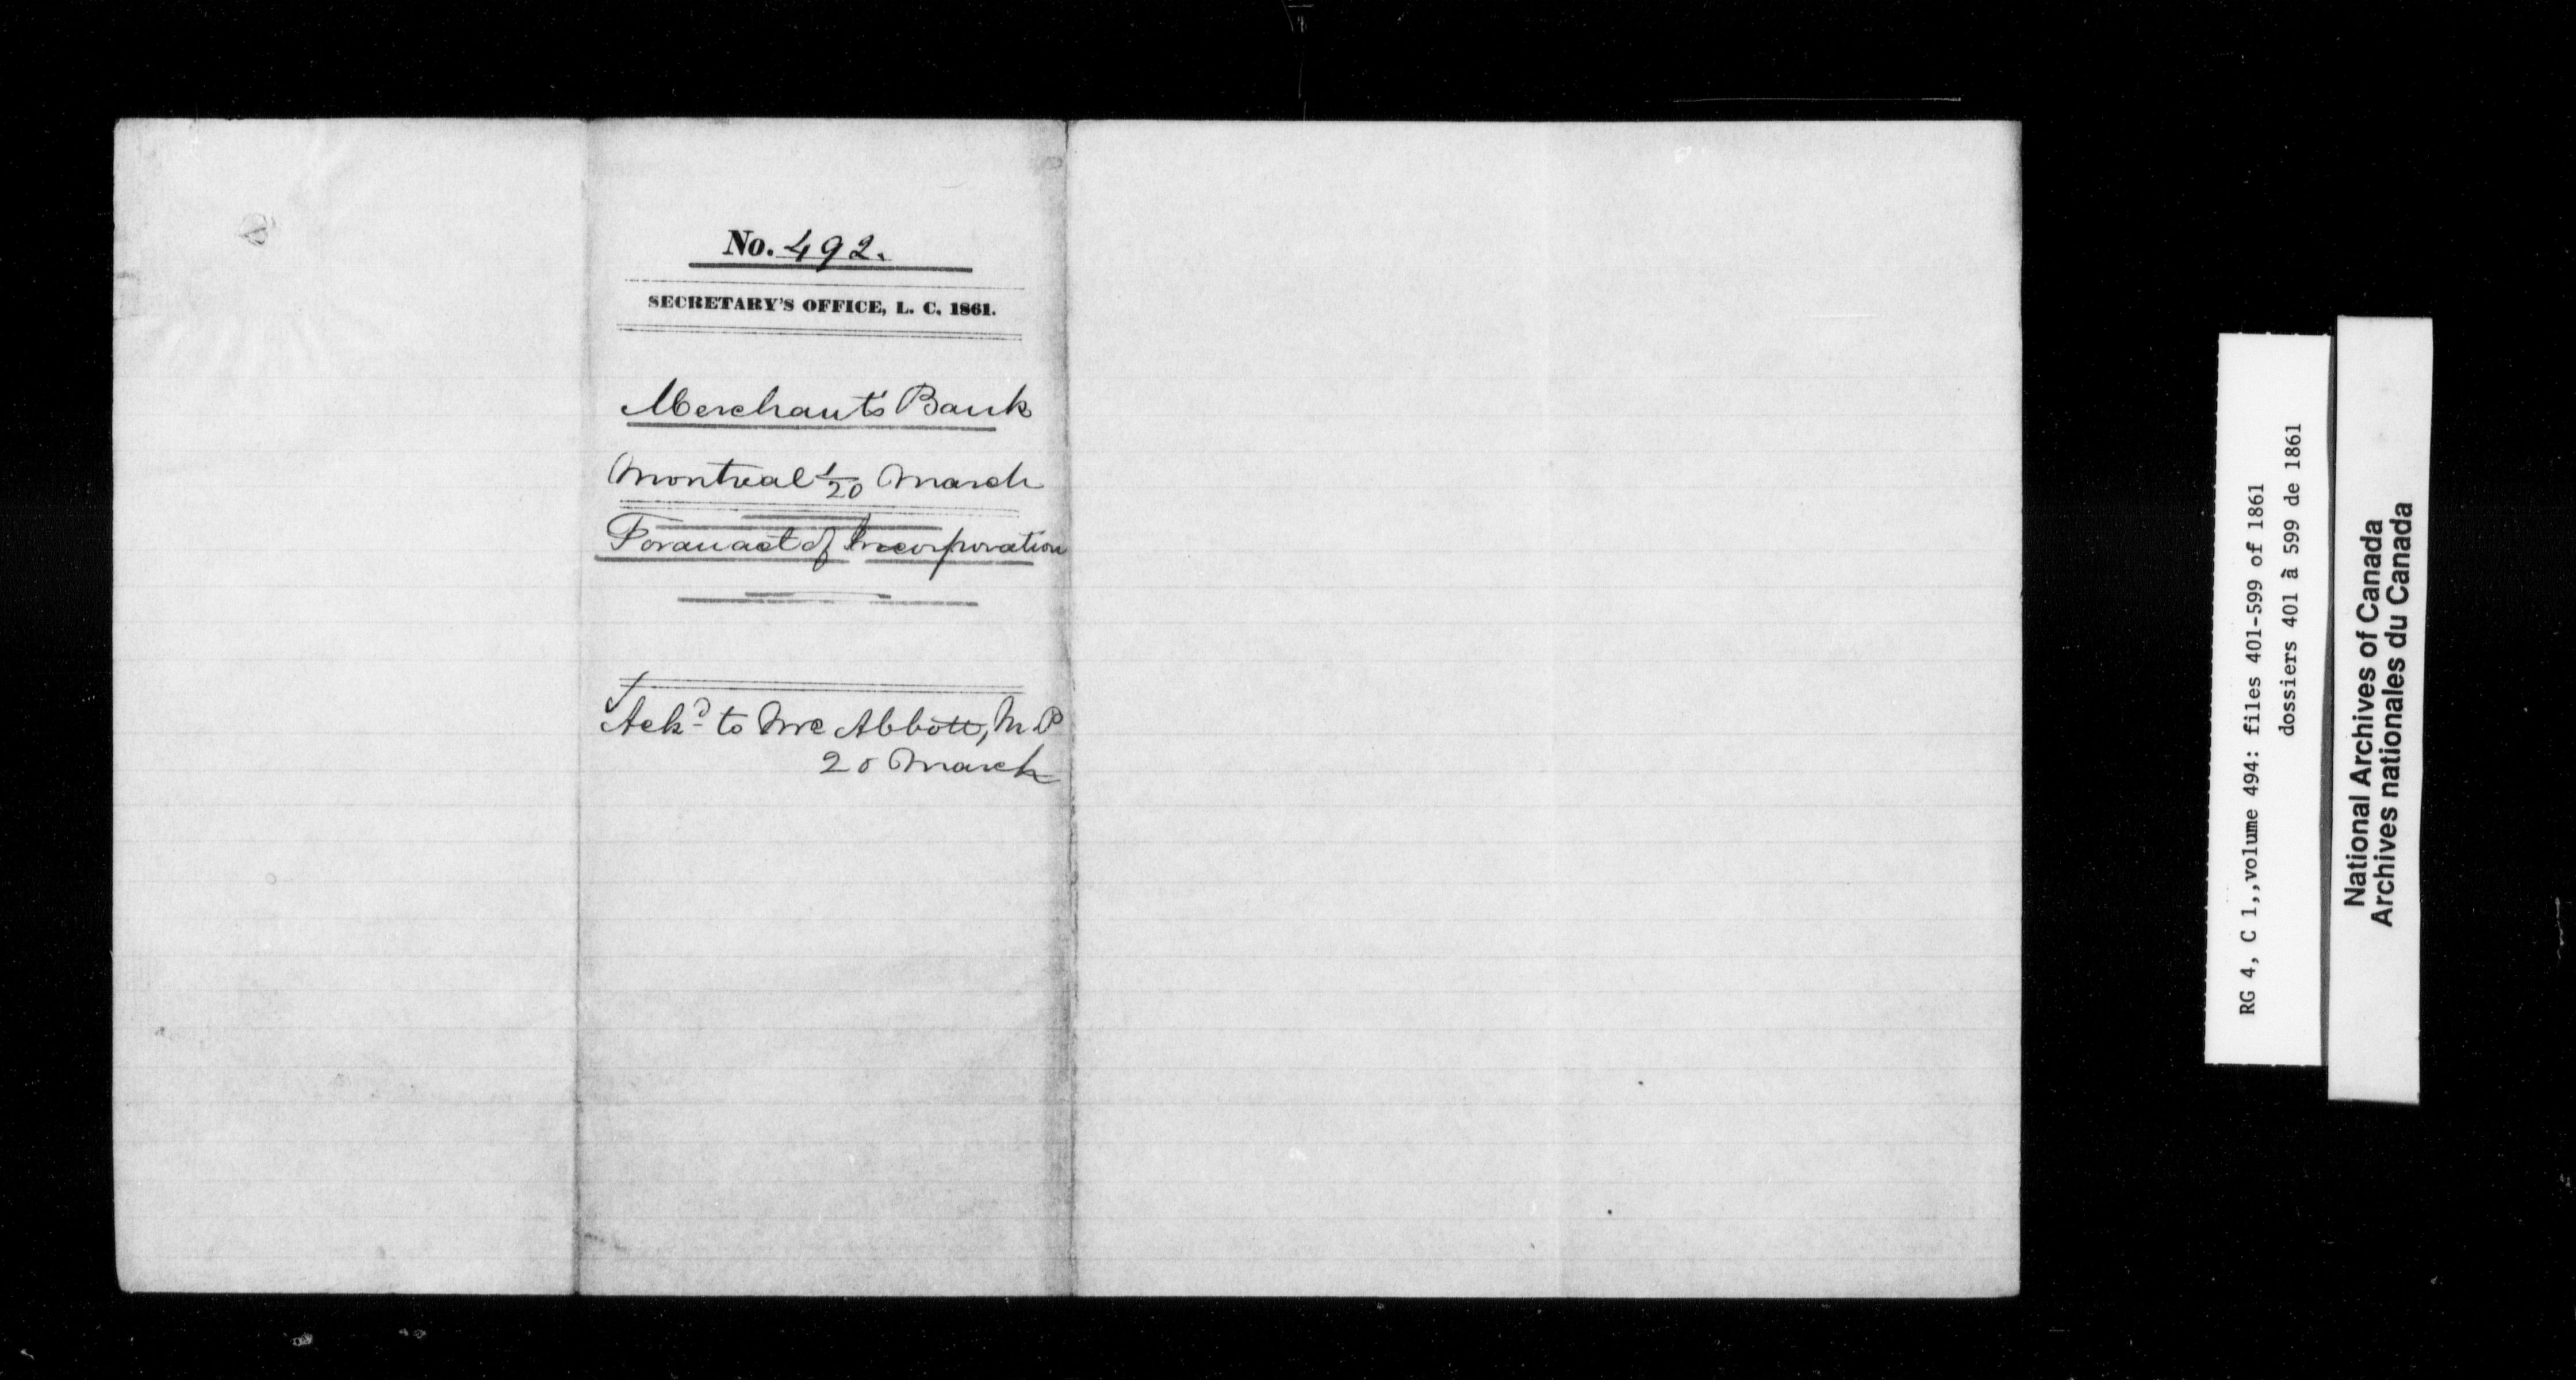 No. 492.
SECRETARY'S OFFICE, L. C. 1861.
Merchant's Bank
Montreal 1/20 March
For an act of Incorporation
Ackd to Mr Abbott, M P
20 March
RG 4, C 1,,volume 494: files 401-599 of 1861
dossiers 401 à 599 de 1861
National Archives of Canada
Archives nationales du Canada